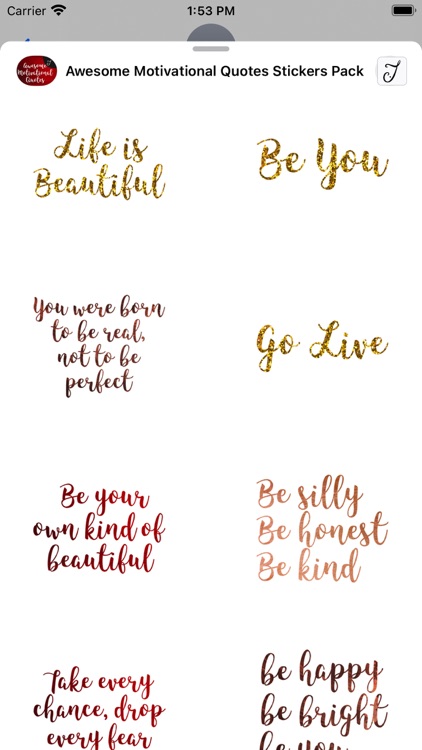 Carrier 1:53 PM
Awesome Motivational Quotes
Awesome Motivational Quotes Stickers Pack
Life is
Beautiful
Be You
You were born
to be real,
not to be
perfect
Go Live
Be your
own kind of
beautiful
Be silly
Be honest
Be kind
Take every
chance, drop
every fear
be happy
be bright
be you